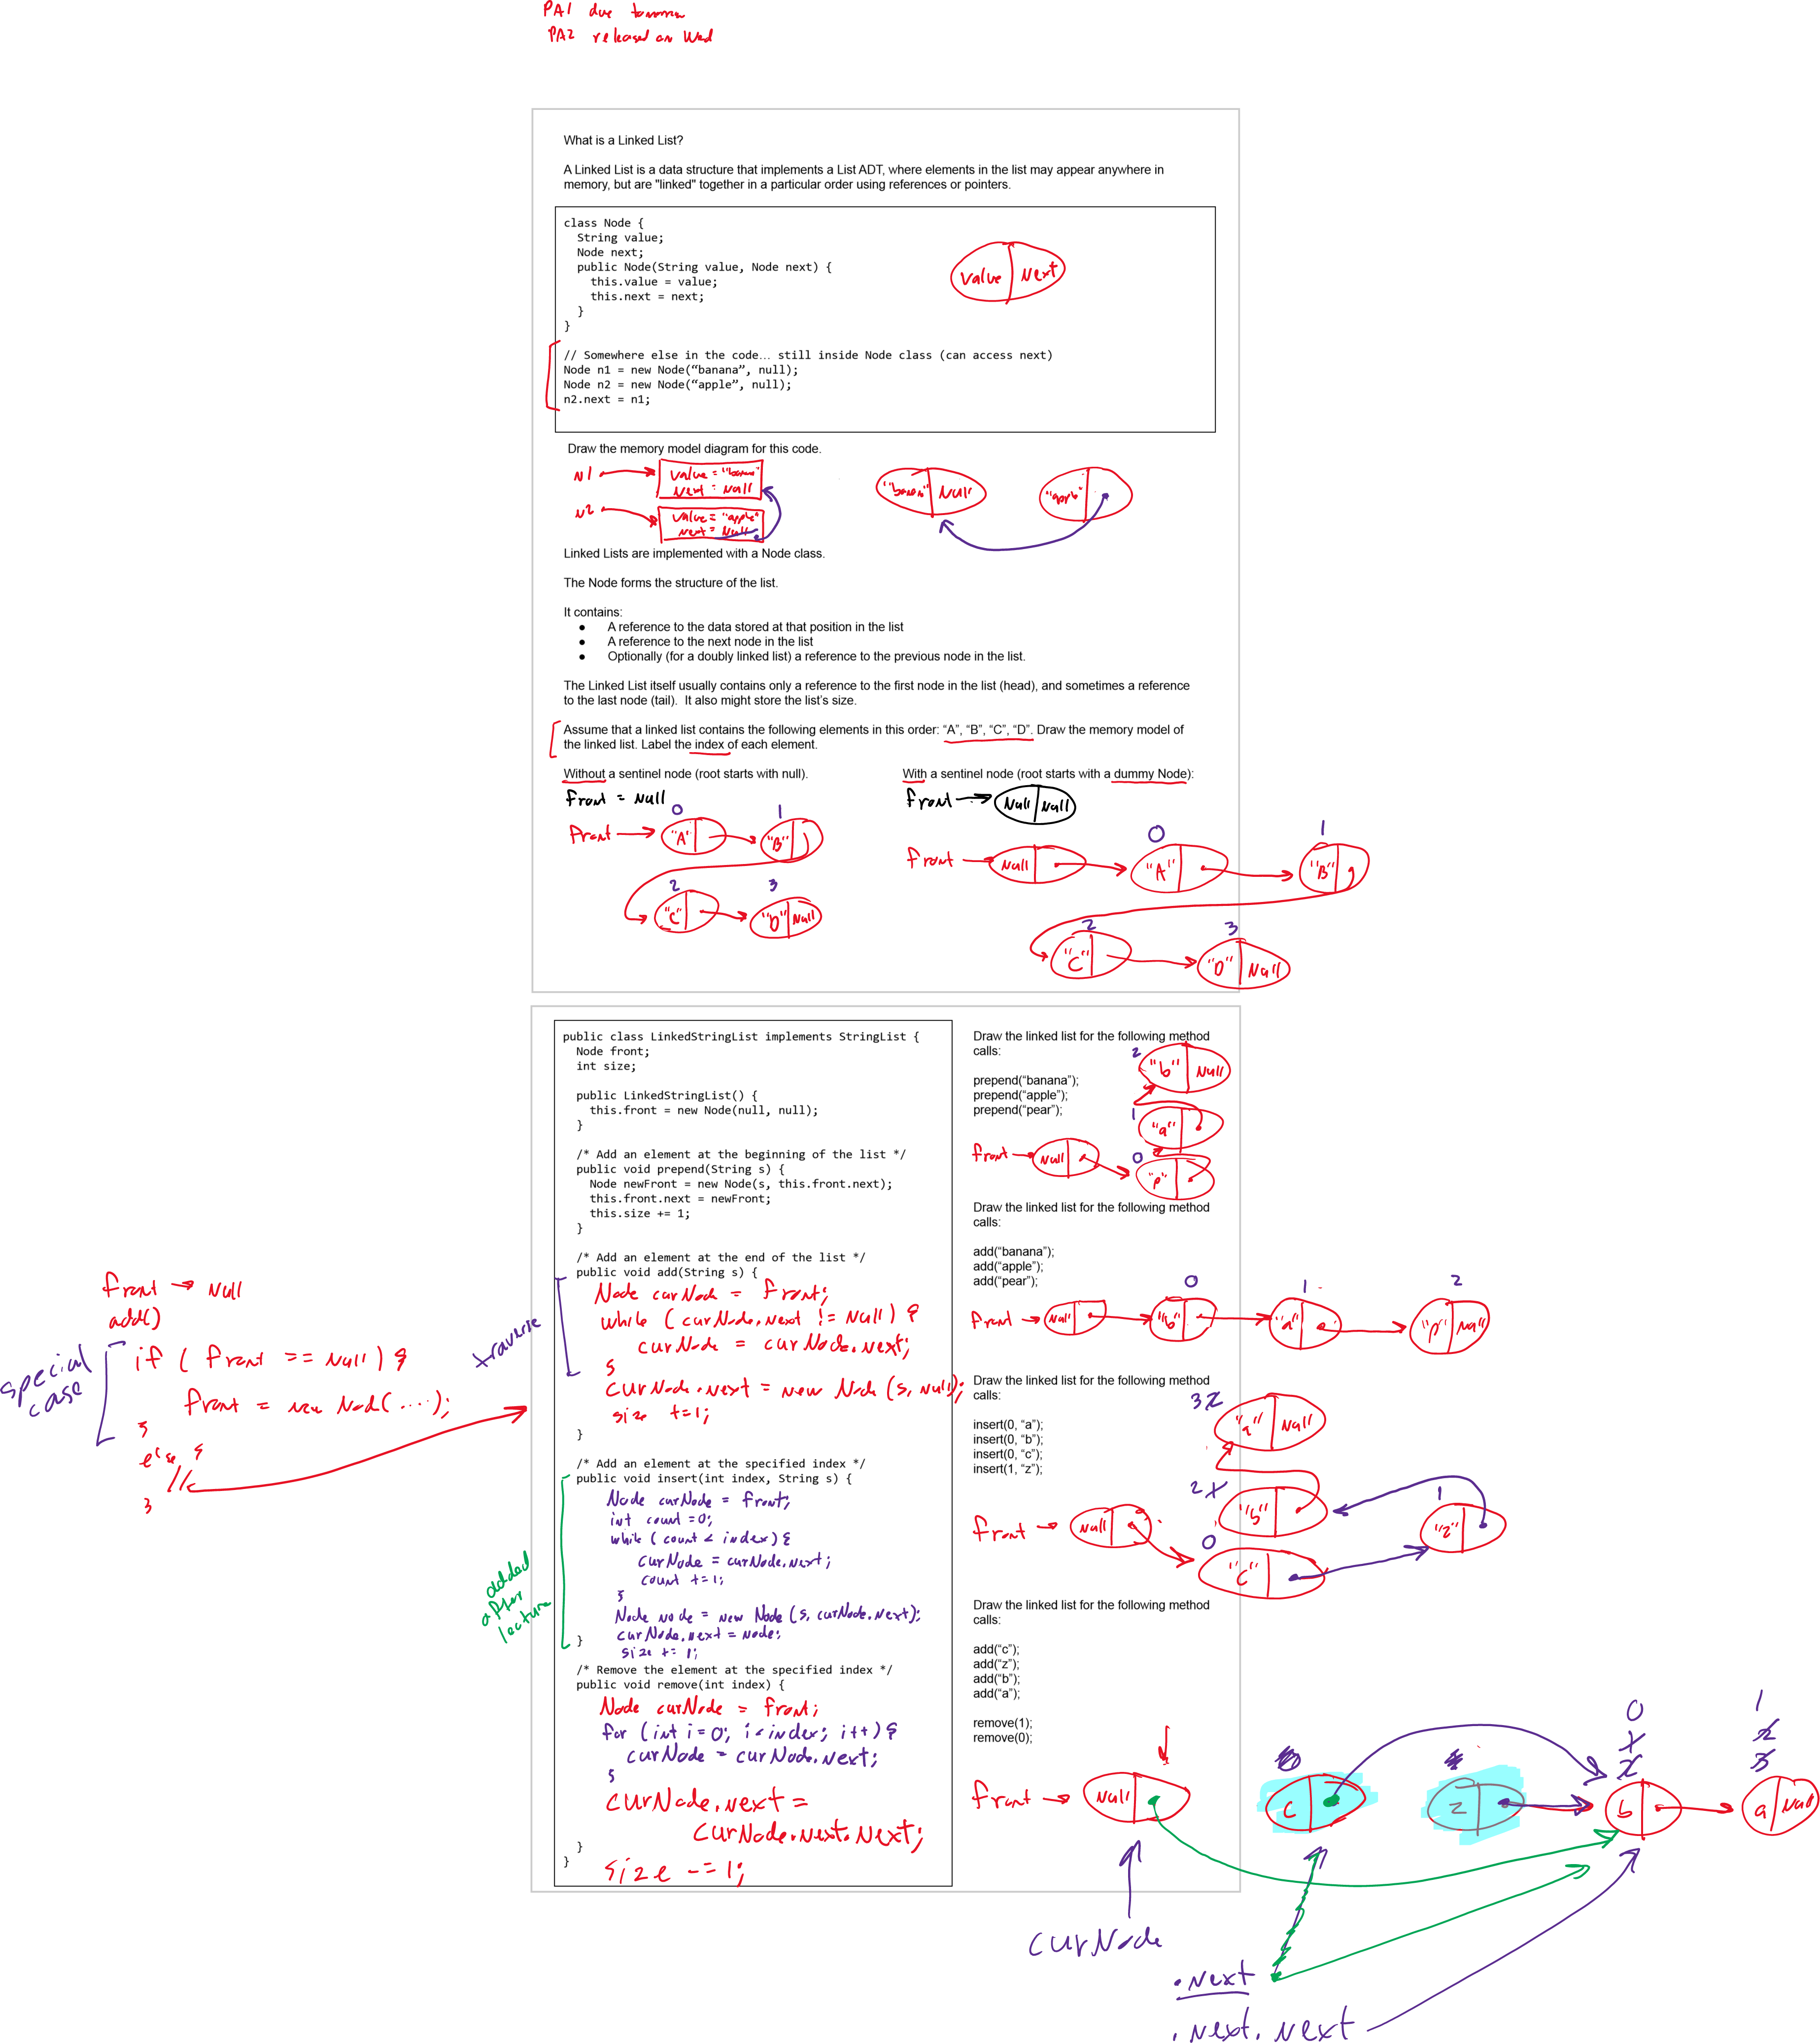 PA1 due tomorrow
PA2 released on Wed
What is a Linked List?
A Linked List is a data structure that implements a List ADT, where elements in the list may appear anywhere in
memory, but are "linked" together in a particular order using references or pointers.
class Node {
String value;
Node next;
public Node(String value, Node next) {
this.value = value;
this.next = next;
}
}
value Next
// Somewhere else in the code… still inside Node class (can access next)
Node n1 = new Node(“banana”, null);
Node n2 = new Node(“apple”, null);
n2.next = n1;
Draw the memory model diagram for this code.
N1 value = "banana"
next = Null
N2 value = "apple"
next = Null
"banana" Null "apple"
Linked Lists are implemented with a Node class.
The Node forms the structure of the list.
It contains:
● A reference to the data stored at that position in the list
● A reference to the next node in the list
● Optionally (for a doubly linked list) a reference to the previous node in the list.
The Linked List itself usually contains only a reference to the first node in the list (head), and sometimes a reference
to the last node (tail). It also might store the list's size.
Assume that a linked list contains the following elements in this order: “A”, “B”, “C”, “D”. Draw the memory model of
the linked list. Label the index of each element.
Without a sentinel node (root starts with null).
front = Null
0 1
front "A" "B"
2 3
"C" "D" Null
With a sentinel node (root starts with a dummy Node):
front Null Null
0 1
front Null "A" "B"
2 3
"C" "D" Null
public class LinkedStringList implements StringList {
Node front;
int size;
public LinkedStringList() {
this.front = new Node(null, null);
}
/* Add an element at the beginning of the list */
public void prepend(String s) {
Node newFront = new Node(s, this.front.next);
this.front.next = newFront;
this.size += 1;
}
/* Add an element at the end of the list */
public void add(String s) {
Node curNode = front;
while (curNode.next != Null) {
curNode = curNode.next;
}
curNode.next = new Node (s, Null);
size += 1;
}
traverse
front → Null
add()
if (front == Null) {
front = new Node(....);
}
else {
//
}
special
case
/* Add an element at the specified index */
public void insert(int index, String s) {
Node curNode = front;
int count = 0;
while (count < index) {
curNode = curNode.next;
count += 1;
}
Node node = new Node (s, curNode.next);
curNode.next = node;
}
size += 1;
added
after
lecture
/* Remove the element at the specified index */
public void remove(int index) {
Node curNode = front;
for (int i = 0; i < index; i++) {
curNode = curNode.next;
}
curNode.next =
curNode.next.next;
}
}
size -= 1;
Draw the linked list for the following method
calls:
prepend(“banana”);
prepend(“apple”);
prepend(“pear”);
2 "b" Null
1 "a"
0 "p"
front Null
Draw the linked list for the following method
calls:
add(“banana”);
add(“apple”);
add(“pear”);
0 1 2
front Null "b" "a" "p" Null
Draw the linked list for the following method
calls:
insert(0, “a”);
insert(0, “b”);
insert(0, “c”);
insert(1, “z”);
3 2 "a" Null
2 1 "b" 1 "z"
front Null 0 "c"
Draw the linked list for the following method
calls:
add(“c”);
add(“z”);
add(“b”);
add(“a”);
remove(1);
remove(0);
0 1
1 2
2 3
front Null c z b a Null
curNode
.next
.next.next